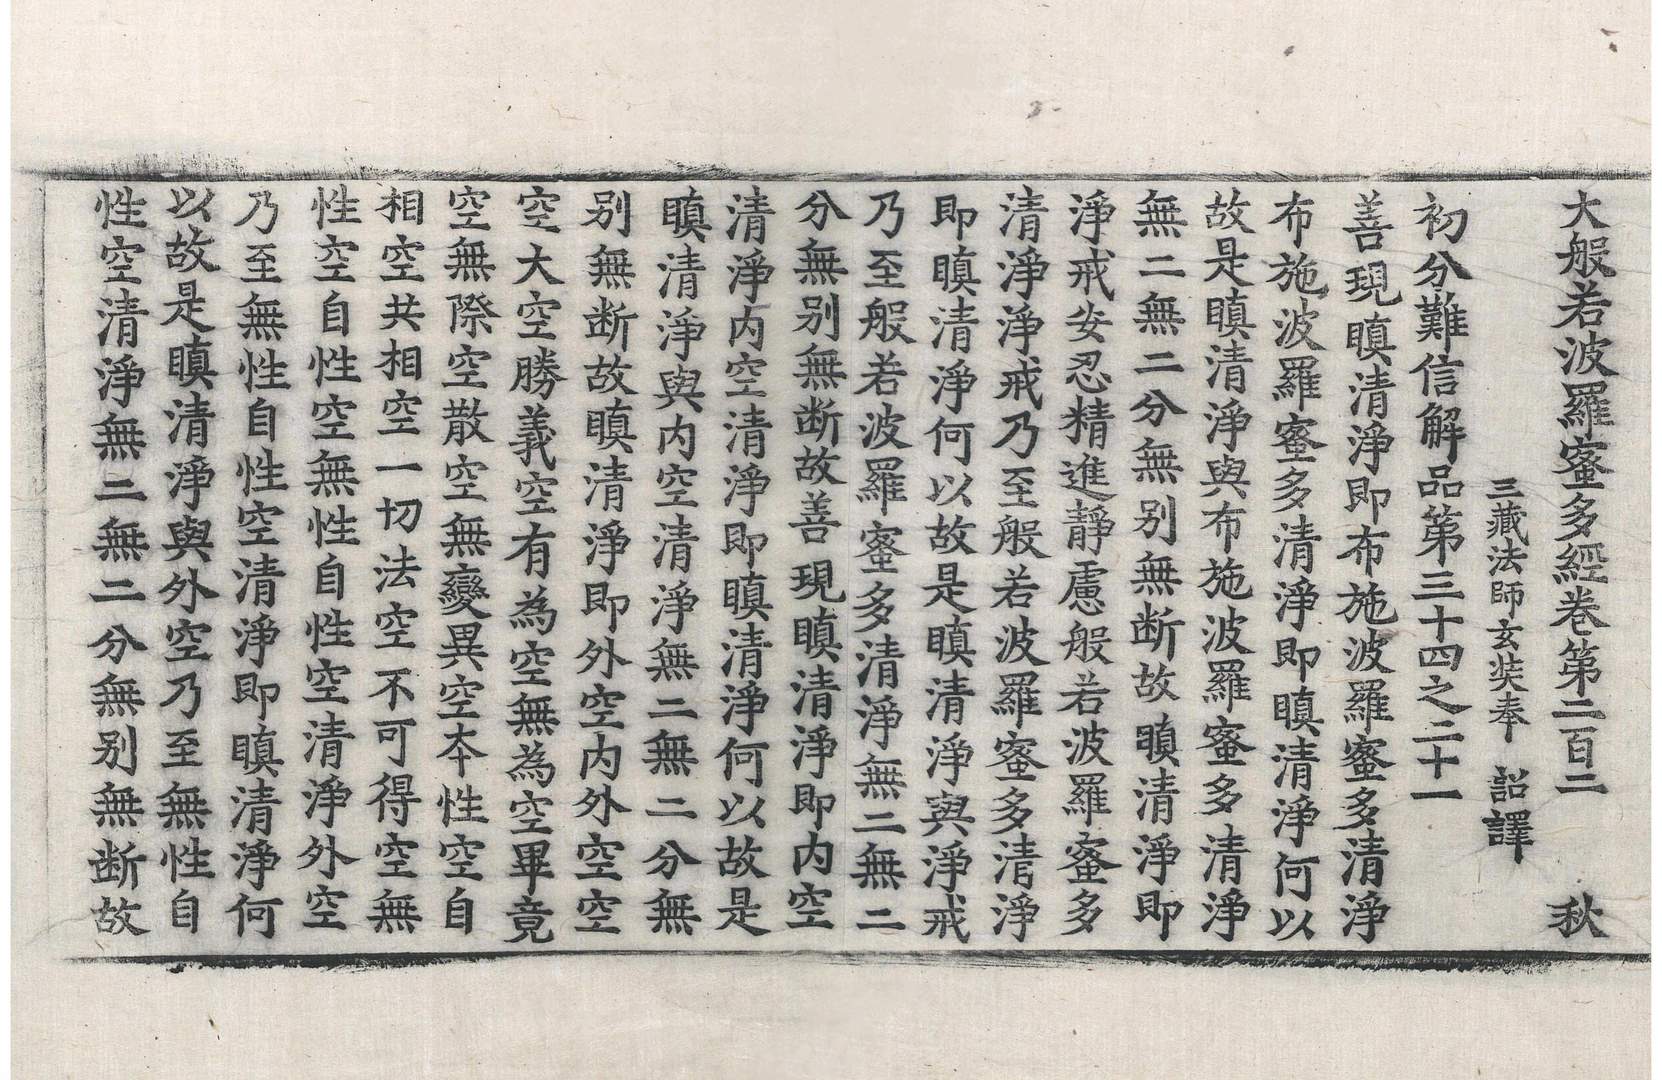 大般若波羅蜜多經卷第二百二　秋
三藏法師玄奘奉　詔譯
初分難信解品第三十四之二十一
善現瞋清淨即布施波羅蜜多清淨
布施波羅蜜多清淨即瞋清淨何以
故是瞋清淨與布施波羅蜜多清淨
無二無二分無別無断故瞋清淨即
淨戒安忍精進靜慮般若波羅蜜多
清淨淨戒乃至般若波羅蜜多清淨
即瞋清淨何以故是瞋清淨與淨戒
乃至般若波羅蜜多清淨無二無二
分無別無断故善現瞋清淨即內空
清淨內空清淨即瞋清淨何以故是
瞋清淨與內空清淨無二無二分無
別無断故瞋清淨即外空內外空空
空大空勝義空有為空無為空畢竟
空無際空散空無變異空本性空自
相空共相空一切法空不可得空無
性空自性空無性自性空清淨外空
乃至無性自性空清淨即瞋清淨何
以故是瞋清淨與外空乃至無性自
性空清淨無二無二分無別無断故